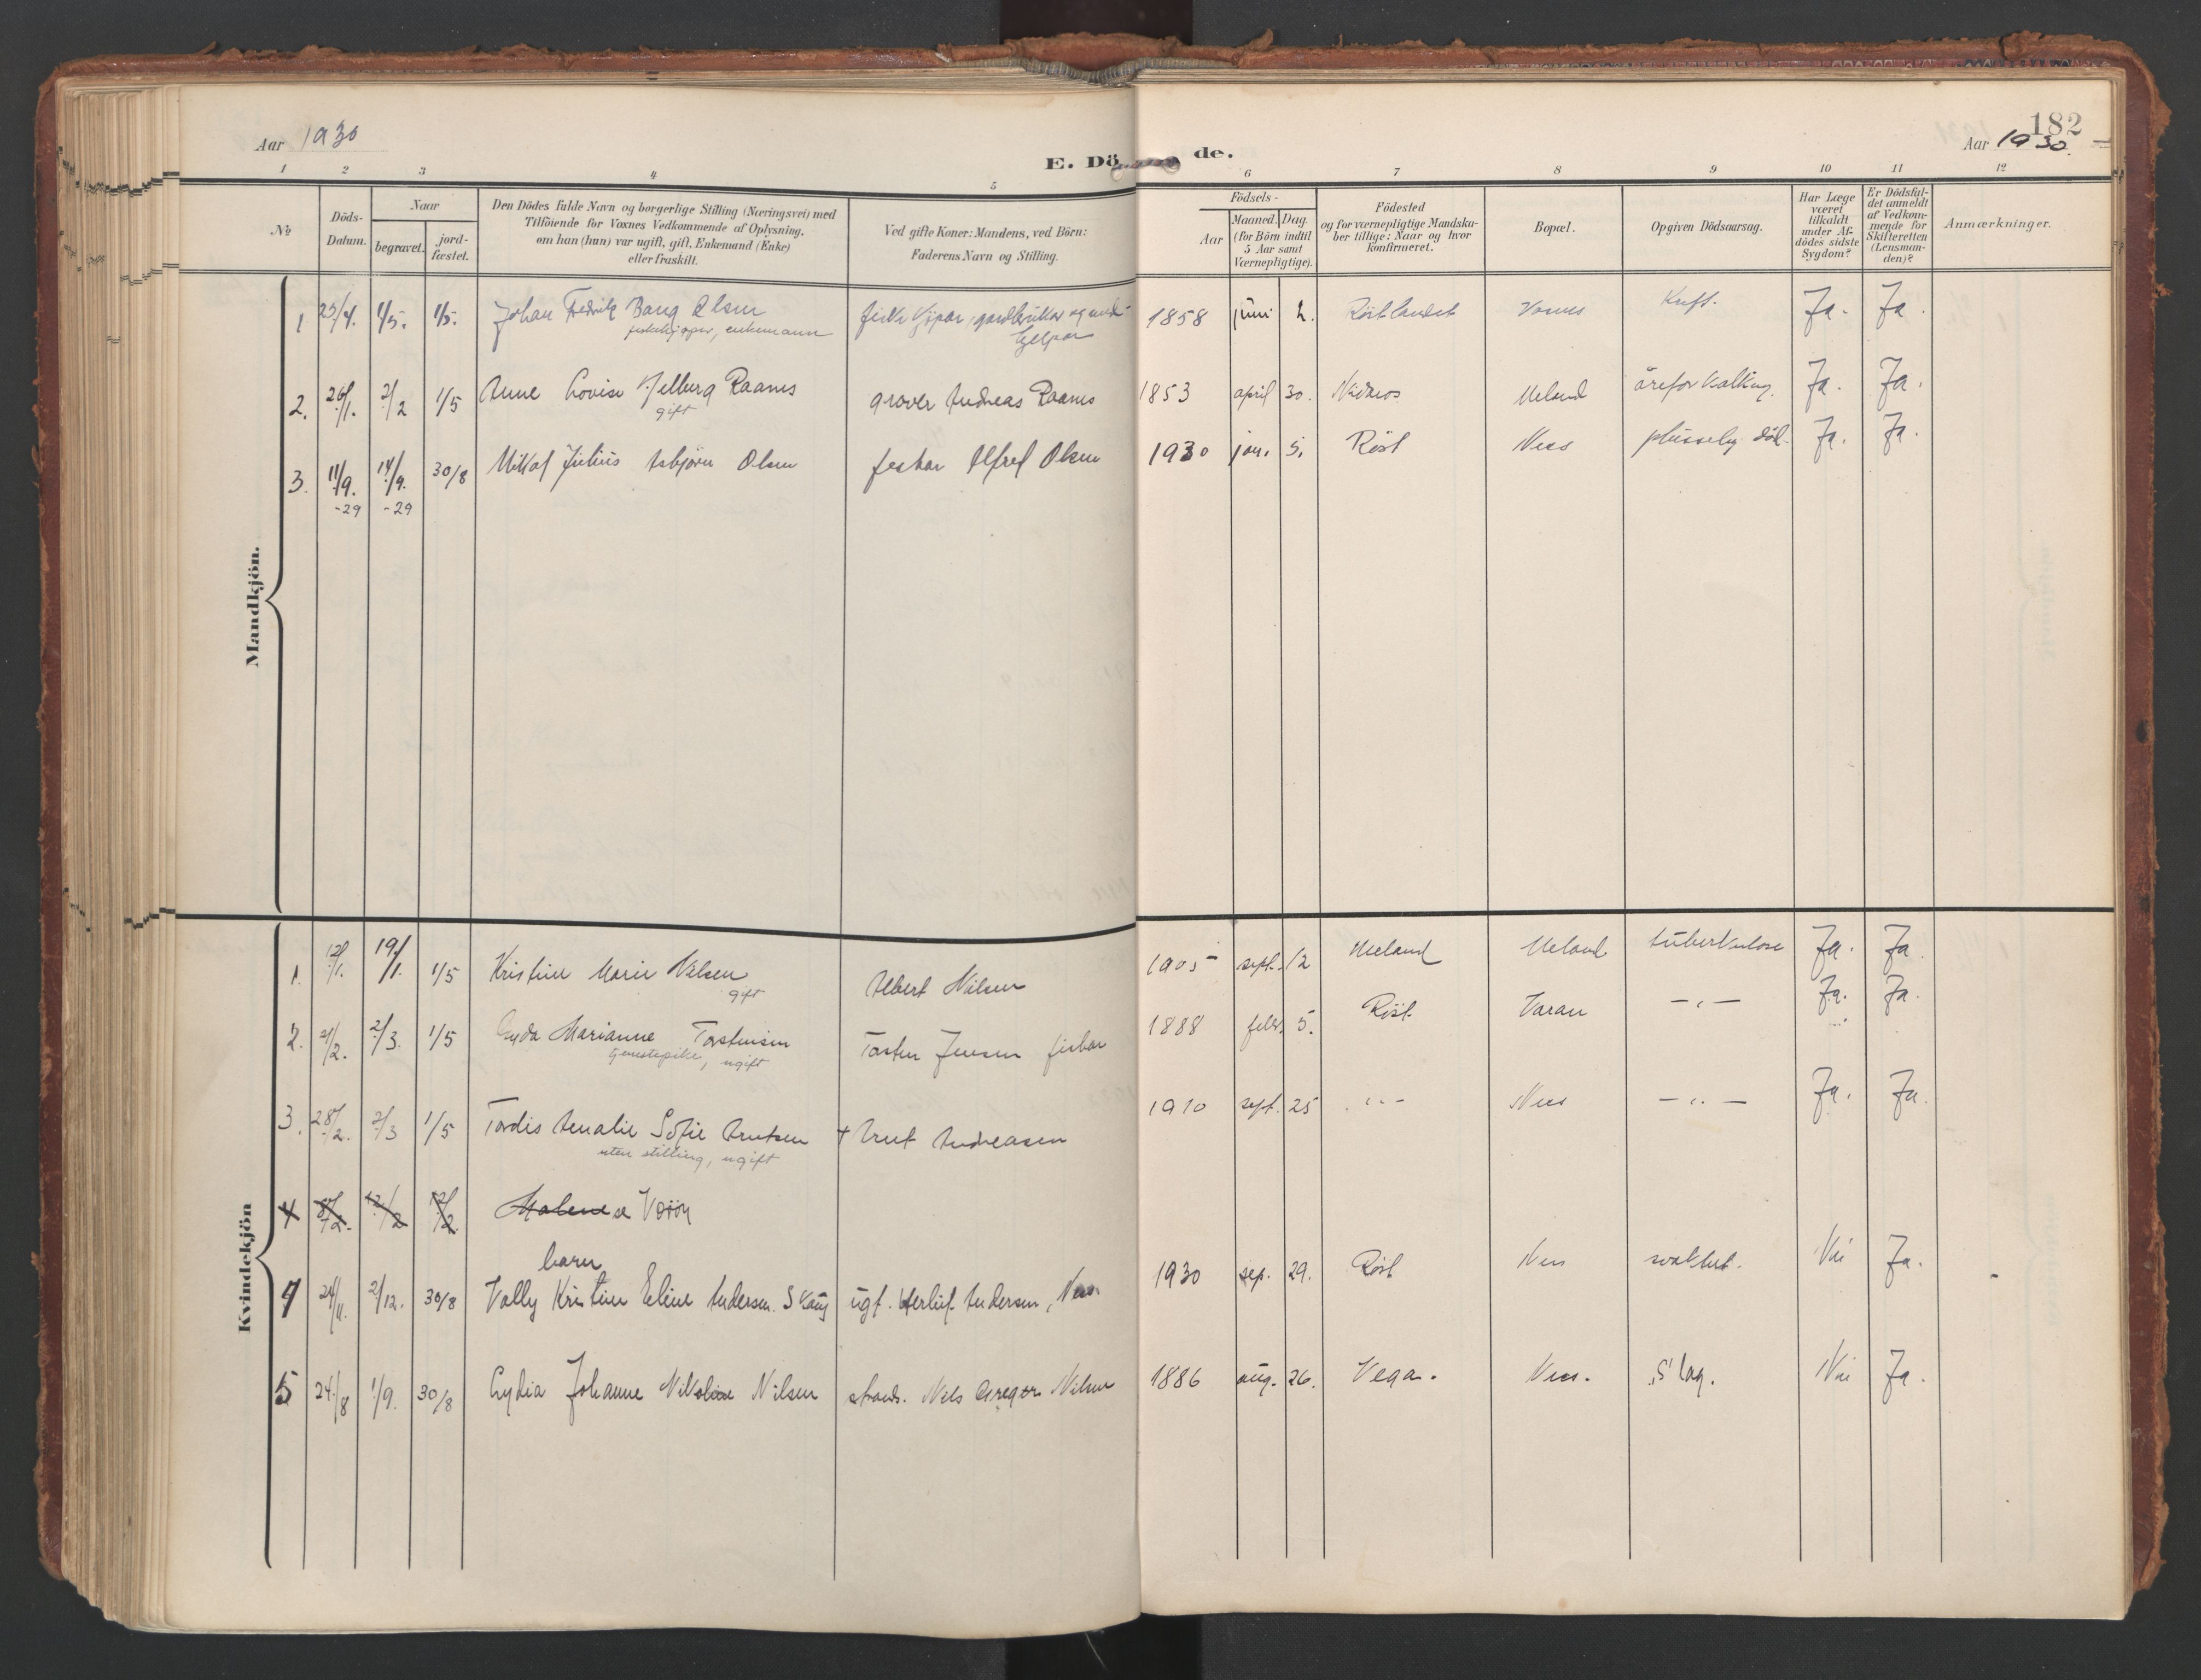 Aar 1930
E. Dö de.
182
Aar 1930.
1 2 3 4 5 6 7 8 9 10 11 12
No
Döds-
Datum.
Naar
begravet.
jord-
fæstet.
Den Dödes fulde Navn og borgerlige Stilling (Næringsvei) med
Tilföiende for Voxnes Vedkommende af Oplysning,
om han (hun) var ugift, gift, Enkemand (Enke)
eller fraskilt.
Ved gifte Koner: Mandens, ved Börn:
Faderens Navn og Stilling.
Födsels-
Aar
Maaned. Dag.
(for Börn indtil
5 Aar samt
Værnepligtige).
Födested
og for værnepligtige Mandska-
ber tillige: Naar og hvor
konfirmeret.
Bopæl.
Opgiven Dödsaarsag.
Har Læge
været
tilkaldt
under Af-
dödes sidste
Sygdom?
Er Dödsfal-
det anmeldt
af Vedkom-
mende for
Skifteretten
(Lensman-
den)?
Anmærkninger.
Mandkjön.
1 25/4. 1/5. 1/5. Johan Fredrik Bang Olsen 1858 juni 2. Röstlandet Kreft. Ja. Ja.
fiskekjöper, enkemann
2. 26/1. 2/2 1/5 Anne Lovise Raanes graver Andreas Raanes 1853 april 30. Nidaros Ueland åreforkalkning. Ja. Ja.
gift
3. 11/9. 14/9. 30/8 Julius Asbjörn Olsen fiskar Alfred Olsen 1930 jan. 5. Röst Nes plusseleg död. Ja. Ja.
-29 -29
Kvindekjön
1. 12/1. 19/1. 1/5 Kristine Marie Nilsen Albert Nilsen 1905 sept. 12 Ueland Ueland tuberkulose Ja. Ja.
gift
2. 21/2. 2/3. 1/5 Gyda Marianne Torstensen Torsten Jensen fiskar 1888 febr. 5. Röst. Varan -„- Ja. Ja.
tjenestepike, ugift
3. 28/2. 2/3 1/5 Tordis Amalie Sofie Arntsen + Arnt Andreasen 1910 sept. 25 -„- Nes -„- Ja. Ja.
uten stilling, ugift
4 8/2. 12/2 12/2 Malene
barn
4 24/11. 2/12. 30/8 Vally Kristine Eline Andersen. ugf. Herluf Andersen, Nes 1930 sep. 29. Röst Nes svakhet. Nei Ja.
5 24/8 1/9. 30/8 Lydia Johanne Nikoline Nilsen Nils Gregor Nilsen 1886 aug. 26. Vega. Nes. Slag. Nei Ja.